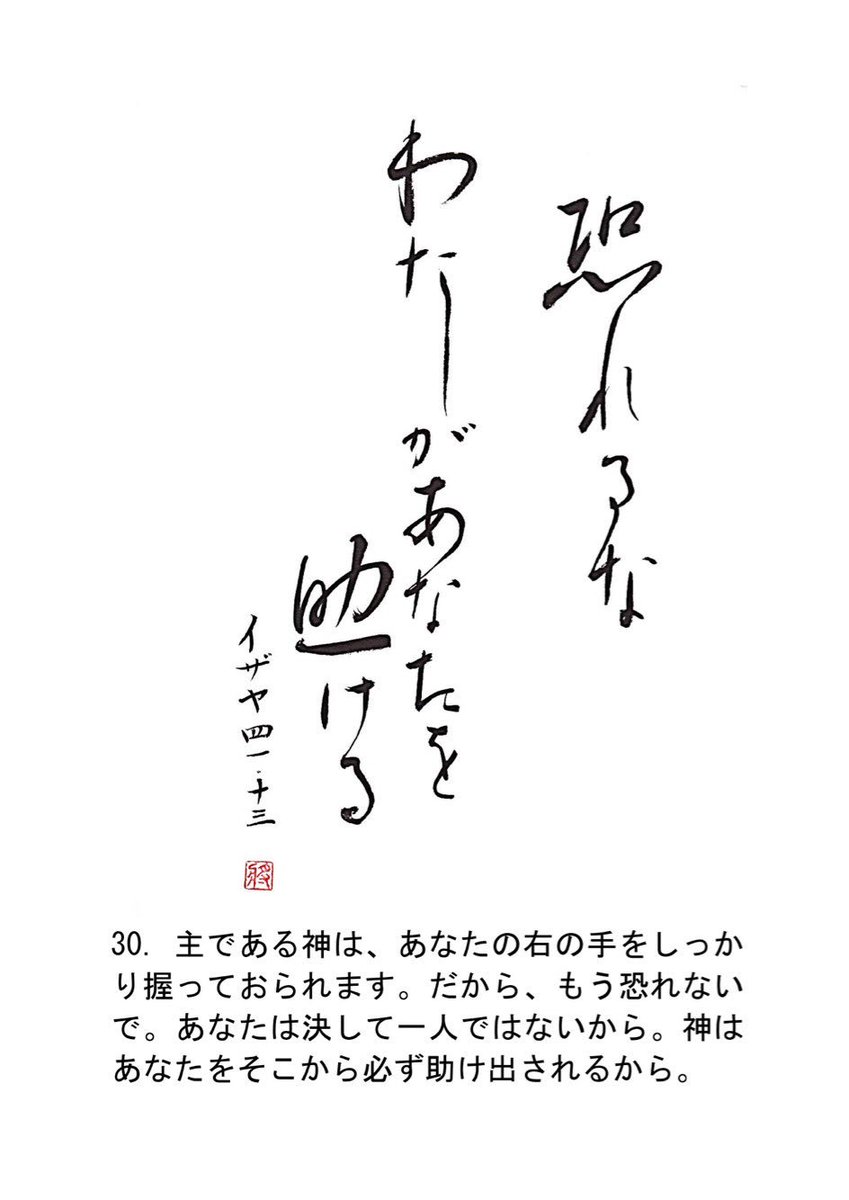 恐れるな
わたしがあなたを
助ける
イザヤ四一・十三
将
30. 主である神は、あなたの右の手をしっか
り握っておられます。だから、もう恐れない
で。あなたは決して一人ではないから。神は
あなたをそこから必ず助け出されるから。